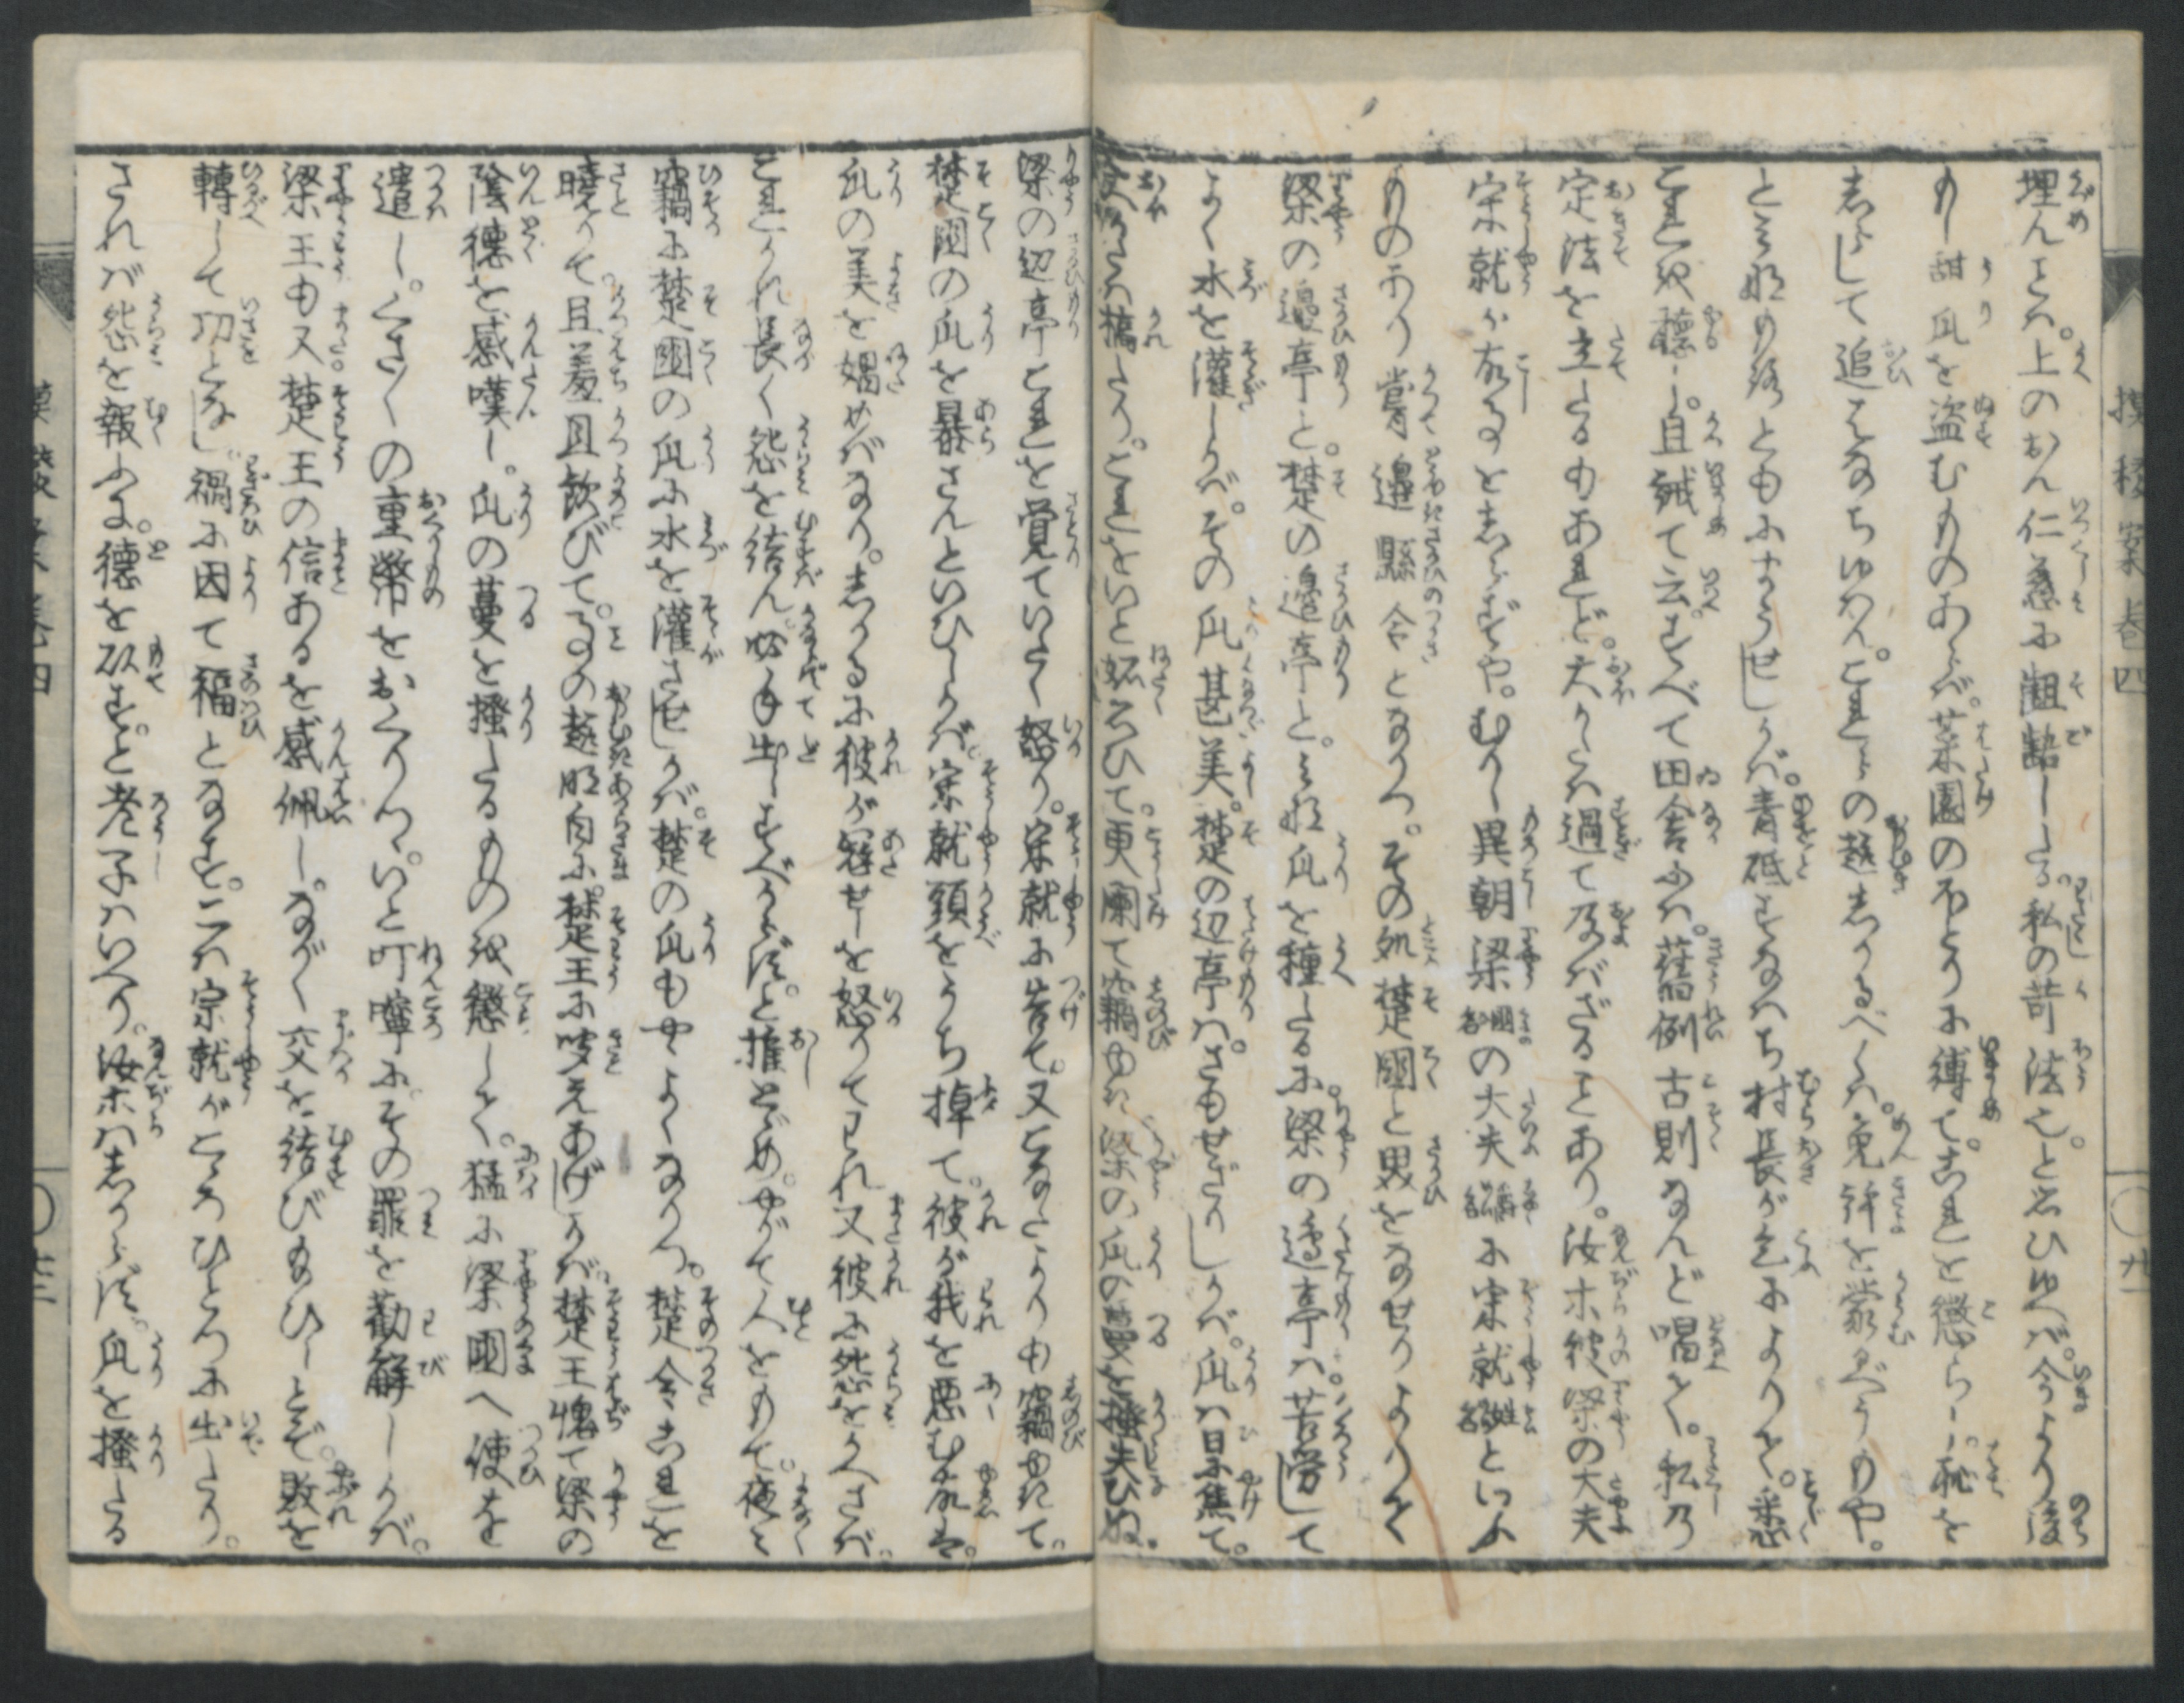 埋んとは。上のおん仁慈に齟齬したる。私の苛法也。と思ひゆへば。今より後
もし甜瓜を盗むものあらば。菜園のほとりに縛て。これを懲らし。恥を
志らして追はなちゆはん。これらの趣志かるべくは。免許を蒙べうもや。
とこそ願ひ けれ ともにまうせしかば。青砥すなはち村長が乞によりて。悉
これを聴し。且誡て云。すべて田舎には。舊例古則なんど唱て。私の
定法を立たるもあれど。大かたは過て及ばざることあり。汝等彼梁の大夫
宋就が故事を志らずや。むかし異朝梁國の名の大夫官名に宋就姓名といふ
ものあり嘗邊縣令となりつ。その処楚國と界をなせりよりて
梁の邊亭と。楚の邉亭と。こも瓜を種たるに。梁の邊亭は。苦勞して
よく水を灌しかば。その瓜甚美。楚の辺亭は。さもせざりしかば。瓜は日に焦て。
大かたは槁たり。これをいと妬思ひて。更闌て竊ゆき梁の瓜の蔓を掻失ひぬ。
梁の辺亭これを覚ていたく怒り。宋就に告て。又こなたよりも竊ゆきて。
楚國の瓜を暴さんといひしかば。宋就頭をうち掉て。彼が我を悪む故は。
瓜の美を媢めばなり。志かるに彼が窄せしを怒りてわれ又彼に怨をかへさば。
これかれ長く怨を結ん。必手出しすべからず。と推とゞめ。やがて人をもて。夜々
竊に楚國の瓜に水を灌させしかば。楚の瓜もやゝよくなりつ。楚令これを
暁りて。且羞且歓びて。事の趣明白に。楚王に聞えあげしかば。楚王愧て梁の
陰徳を感嘆し。瓜の蔓を掻たるものを懲して。猛に梁國へ使を
遣し。くさ〴〵の重幣をおくりつ。いと叮嚀に。その罪を勸解しかば。
梁王も又。楚王の信あるを感佩し。ながく交を結びあひしとぞ。敗を
轉して功となし。禍に因て福となす。こは宋就がこゝろひとつに出たり。
されば怨を報ふに。徳を以す。と老子はいへり。汝等は志からず。瓜を掻たる